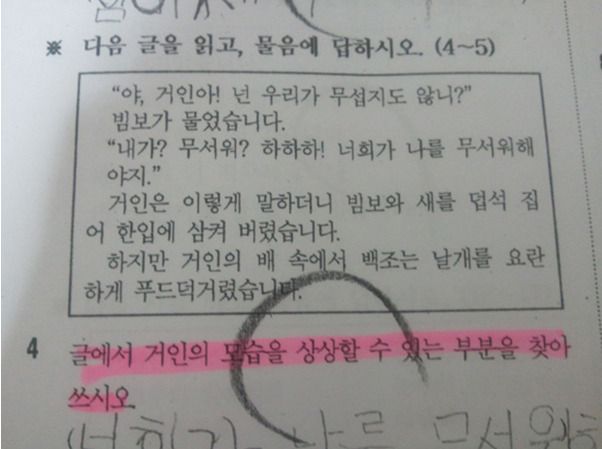 ※ 다음 글을 읽고, 물음에 답하시오. (4~5)
“야, 거인아! 넌 우리가 무섭지도 않니?”
빔보가 물었습니다.
“내가? 무서워? 하하하! 너희가 나를 무서워해
야지.”
거인은 이렇게 말하더니 빔보와 새를 덥석 집
어 한입에 삼켜 버렸습니다.
하지만 거인의 배 속에서 백조는 날개를 요란
하게 푸드덕거렸습니다.
4 글에서 거인의 모습을 상상할 수 있는 부분을 찾아
쓰시오.
(너희가 나를 무서워해